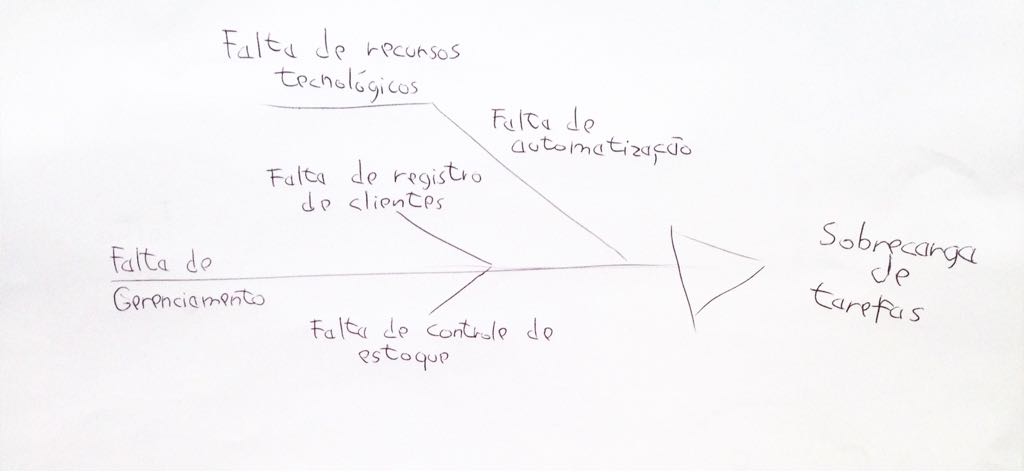 Falta de recursos
tecnológicos
Falta de
automatização
Falta de registro
de clientes
Falta de
Gerenciamento
Falta de controle de
estoque
Sobrecarga
de
tarefas